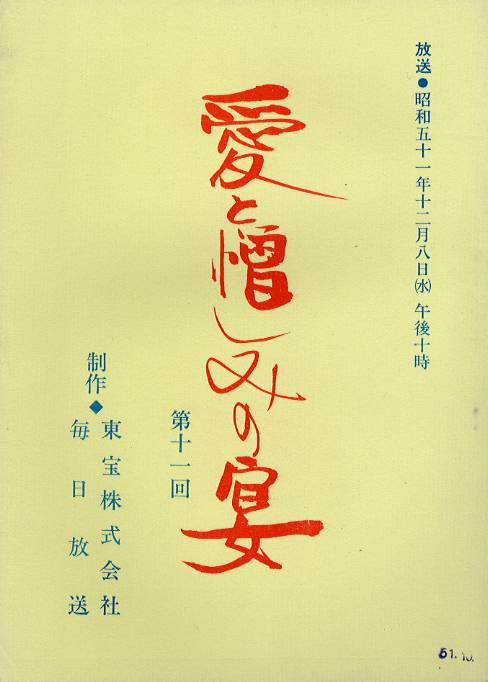 放送●昭和五十一年十二月八日㈬ 午後十時
愛と憎しみの宴
第十一回
制作◆東宝株式会社
毎日放送
51.10.